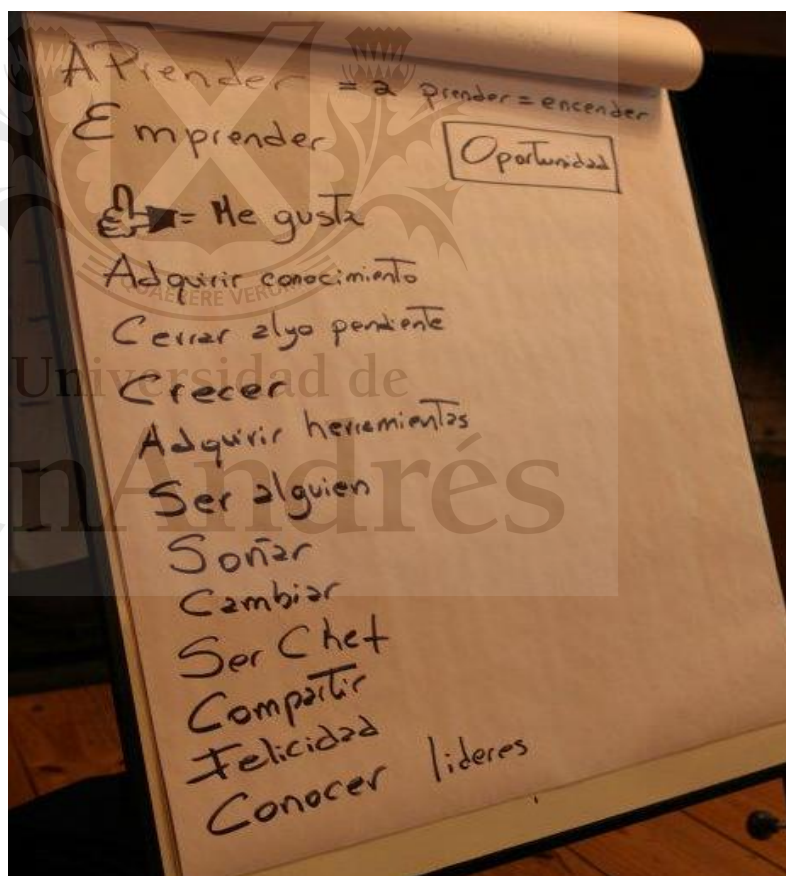 APrender = a prender = encender
Emprender
Oportunidad
= Me gusta
Adquirir conocimiento
Cerrar algo pendiente
Crecer
Adquirir herramientas
Ser alguien
Soñar
Cambiar
Ser Chef
Compartir
Felicidad
Conocer lideres
QUAERERE VERUM
Universidad de
SanAndrés